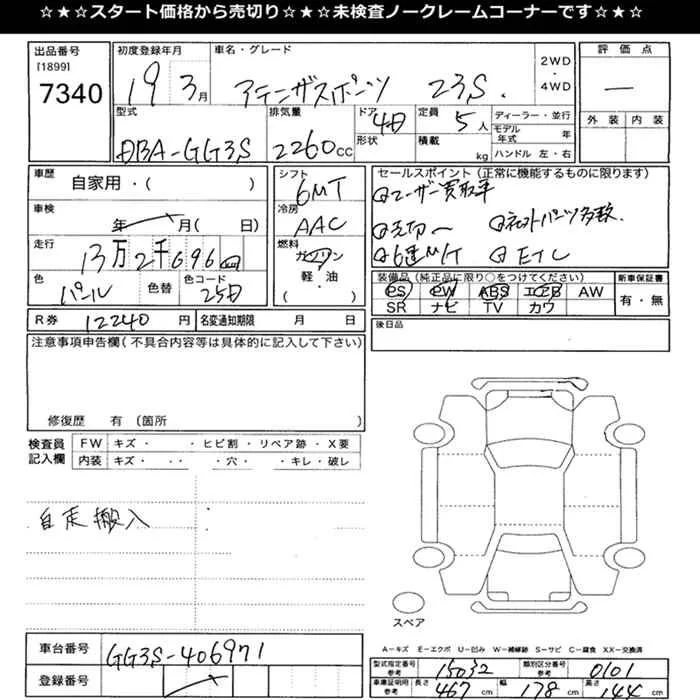 ☆★☆スタート価格から売切り☆★☆未検査ノークレームコーナーです☆★☆
出品番号
[1899]
7340
初度登録年月
19 3月
車名・グレード
アテンザスポーツ 23S
2WD
・
4WD
評価点
—
外装 内装
型式
DBA-GG3S
排気量
2260cc
ドア
4D
形状
定員
5人
積載
kg
ディーラー・並行
モデル年式 年
ハンドル 左・右
車歴 自家用・( )
車検 年 月( 日)
走行 13万2千696km
色 パール 色替 色コード 25D
シフト
6MT
冷房
AAC
燃料
ガソリン
軽・油
( )
セールスポイント(正常に機能するものに限ります)
ユーザー買取車
売切〜 社外パーツ多数.
6速MT ETC
装備品(純正品に限り○をつけてください)
PS PW ABS エアB AW
SR ナビ TV カワ
新車保証書
有・無
R券 12240円 名変通知期限 月 日
後日品
注意事項申告欄(不具合内容等は具体的に記入して下さい)
修復歴 有(箇所 )
検査員
記入欄
FW キズ・ ・ヒビ割・リペア跡・X要
内装 キズ・ ・・ ・穴・ ・キレ・破レ
自走搬入
スペア
A−キズ E−エクボ U−凹み W−補修跡 S−サビ C−腐食 XX−交換済
車台番号 GG3S-406971
登録番号
型式指定番号 参考 15032 類別区分番号 参考 0101
車庫証明用 参考 長さ 467cm 幅 178cm 高さ 144cm